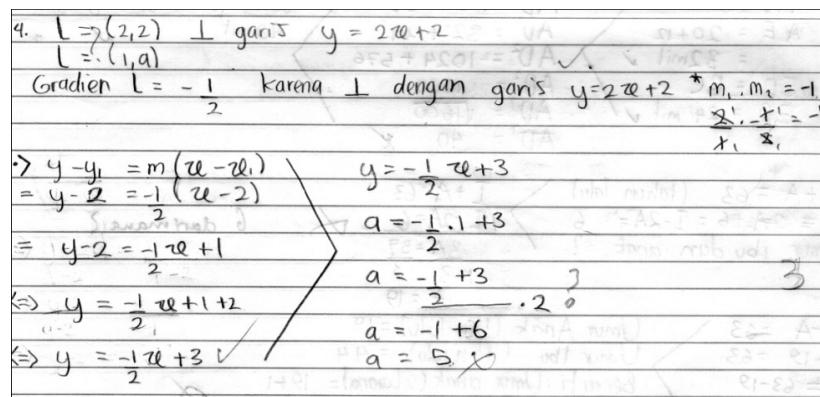 4. L => (2,2) ⊥ garis y = 2x+2
L => (1,a)
Gradien L = -1/2 karena ⊥ dengan garis y=2x+2 * m₁ . m₂ = -1
2/1 . -1/2 = -1
=> y-y₁ = m(x-x₁)
= y-2 = -1/2 (x-2)
= y-2 = -1/2 x+1
<=> y = -1/2 x+1+2
<=> y = -1/2 x+3 ✓
y = -1/2 x+3
a = -1/2 . 1 +3
a = -1/2 +3 ?
.2
a = -1 +6
a = 5
3